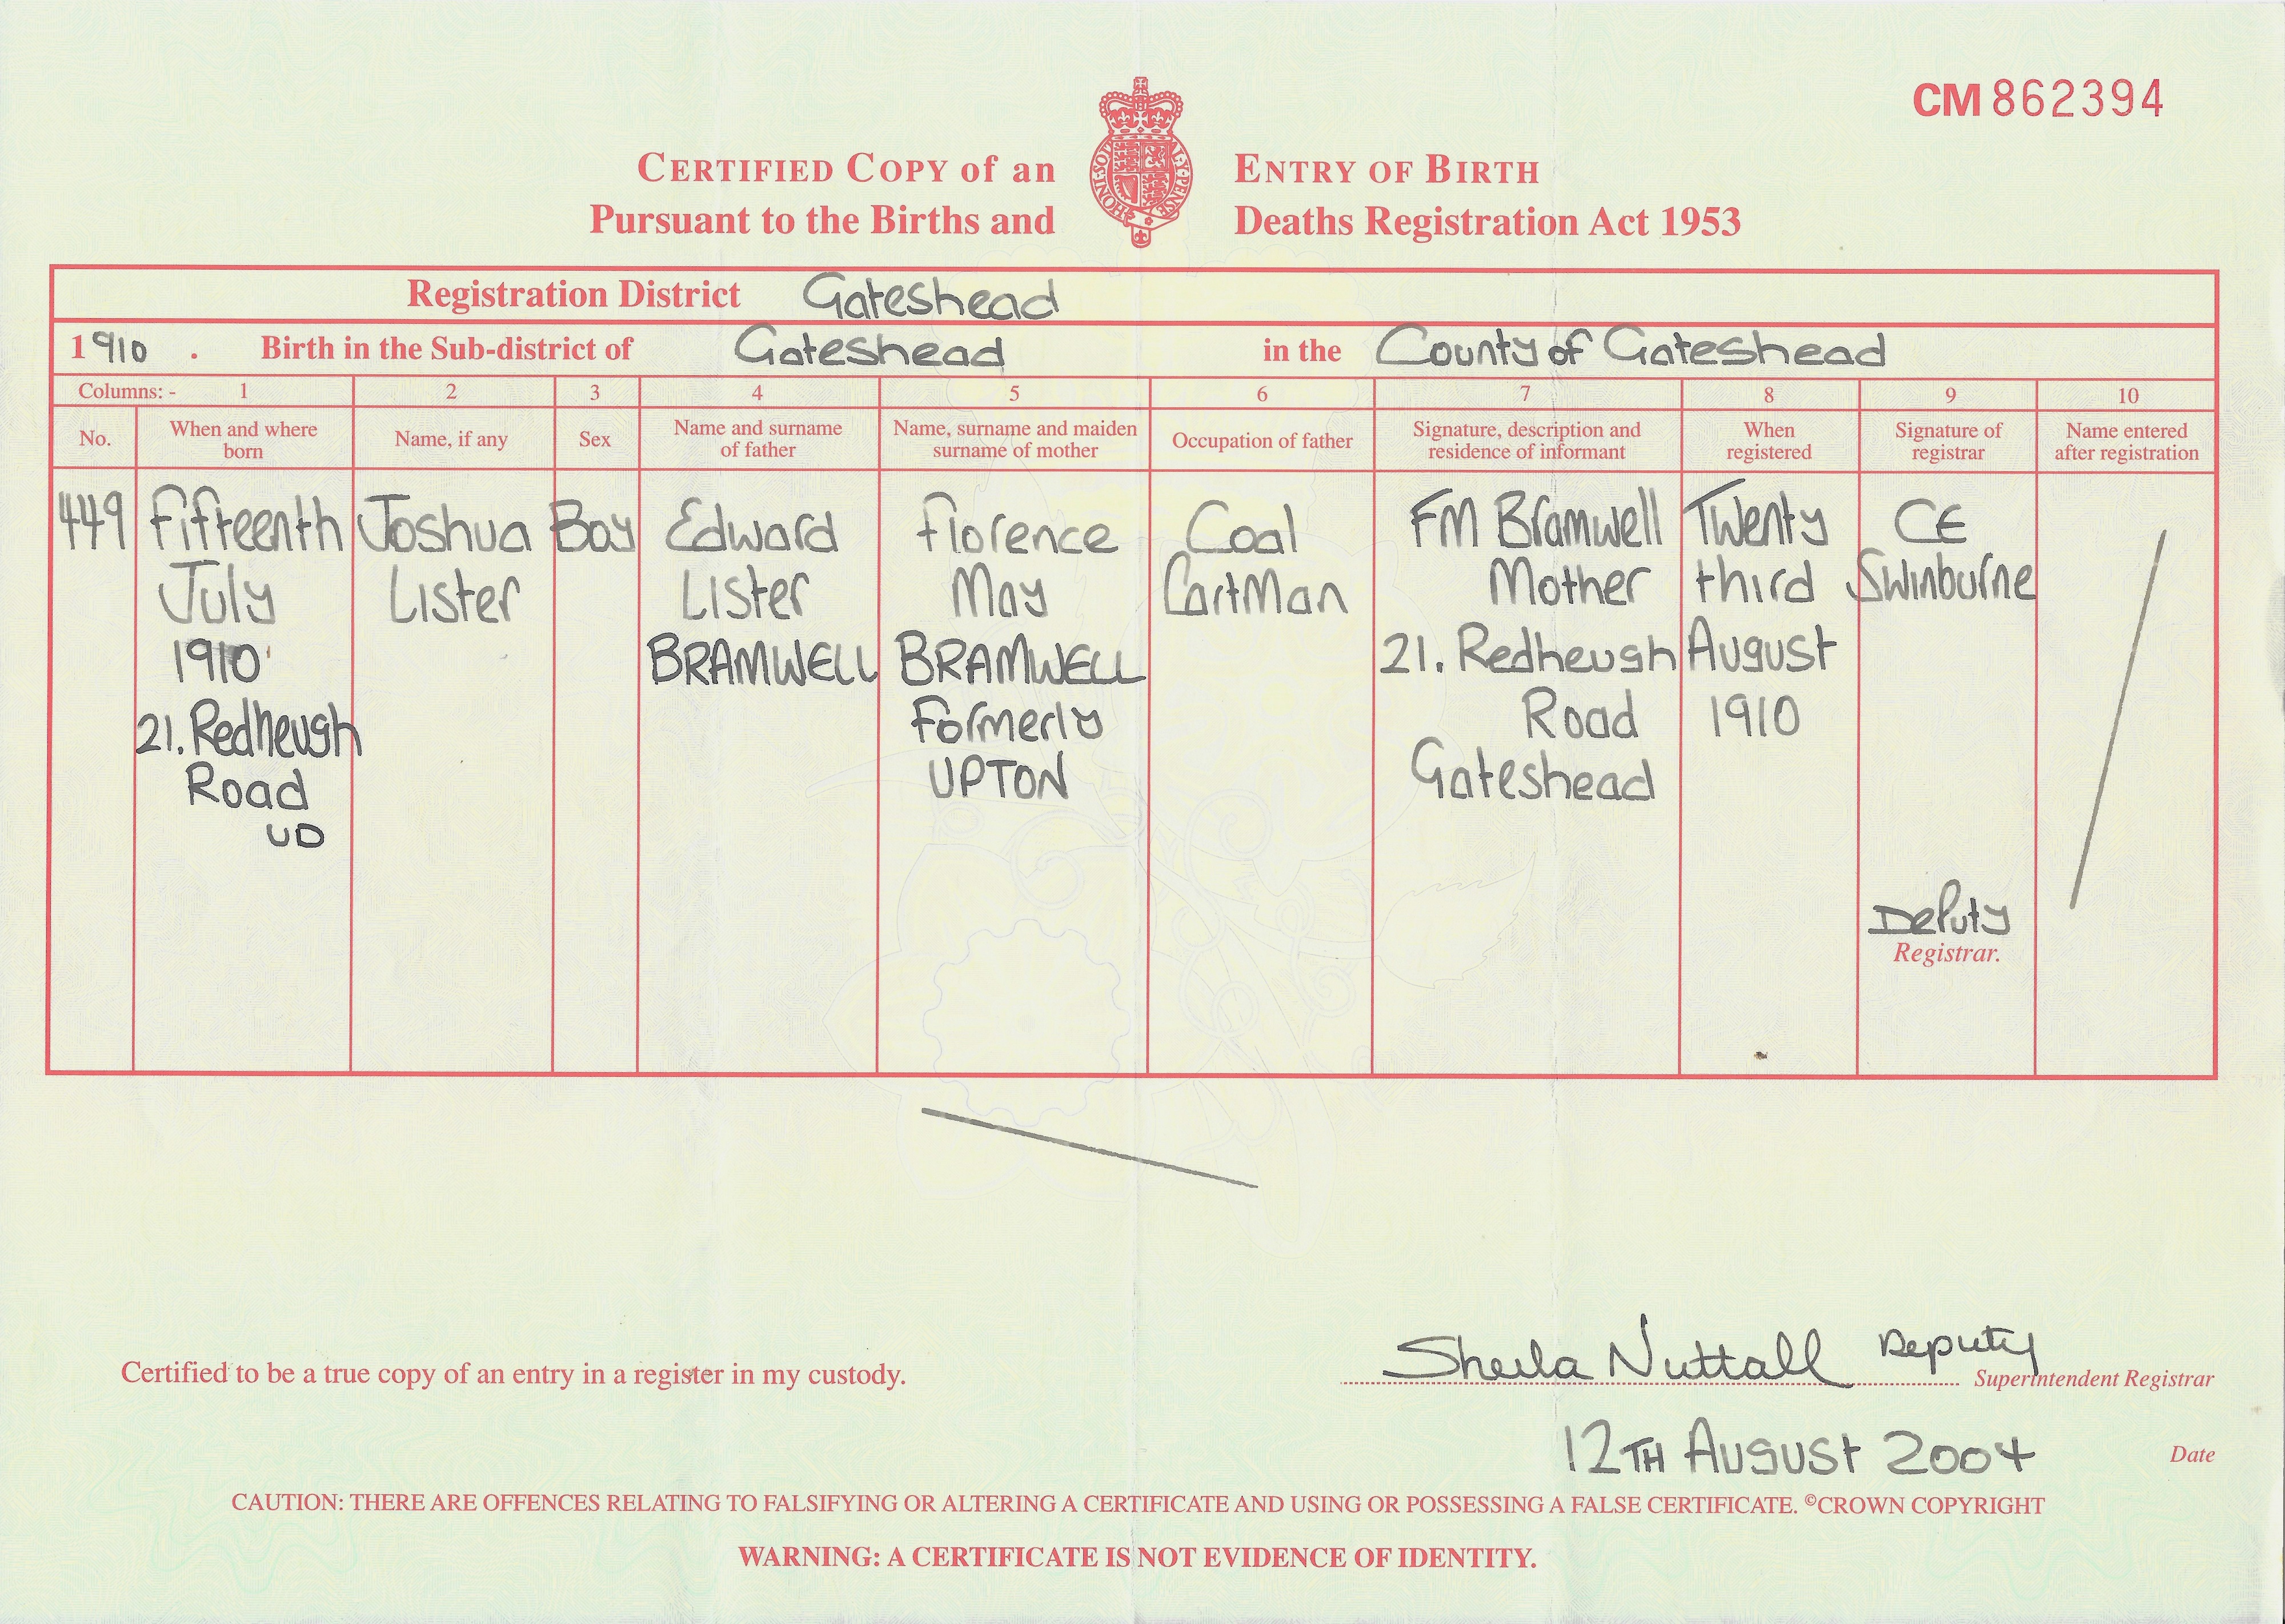 CM 862394
CERTIFIED COPY of an ENTRY OF BIRTH
Pursuant to the Births and Deaths Registration Act 1953
HONI·SOIT
Registration District Gateshead
1910 . Birth in the Sub-district of Gateshead in the County of Gateshead
Columns: - 1 2 3 4 5 6 7 8 9 10
No.
When and where
born
Name, if any
Sex
Name and surname
of father
Name, surname and maiden
surname of mother
Occupation of father
Signature, description and
residence of informant
When
registered
Signature of
registrar
Name entered
after registration
449
Fifteenth
July
1910
21. Redheugh
Road
UD
Joshua
Lister
Boy
Edward
Lister
BRAMWELL
Florence
May
BRAMWELL
Formerly
UPTON
Coal
CartMan
FM Bramwell
Mother
21. Redheugh
Road
Gateshead
Twenty
third
August
1910
CE
Swinburne
Deputy
Registrar.
Certified to be a true copy of an entry in a register in my custody.
Sheila Nuttall Deputy
Superintendent Registrar
12TH AUGUST 2004 Date
CAUTION: THERE ARE OFFENCES RELATING TO FALSIFYING OR ALTERING A CERTIFICATE AND USING OR POSSESSING A FALSE CERTIFICATE. ©CROWN COPYRIGHT
WARNING: A CERTIFICATE IS NOT EVIDENCE OF IDENTITY.